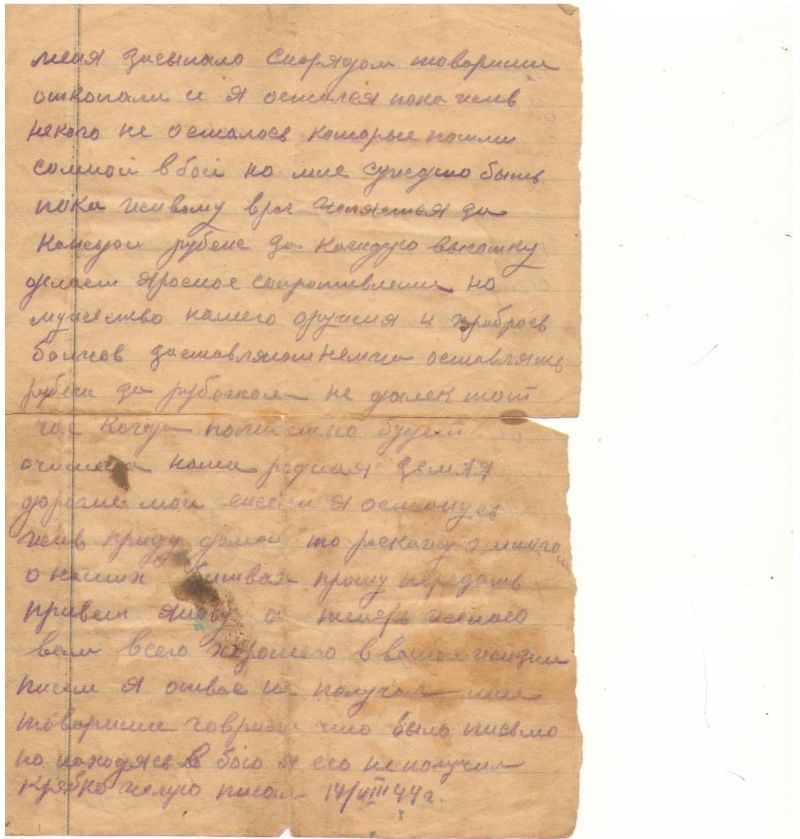 меня засыпало снорядом товарищи
откопали и я остался пока жив
некого не осталось которые пошли
сомной в бой но мне суждено быть
пока живому враг цепляется за
каждой рубеж за каждую высотку
делает яросное сопротивление но
мужество нашего оружия и храбрось
бойцов заставляют немца оставлять
рубеж за рубежом не далек тот
час когда полностью будет
очищена наша родная земля
дорогие мои если я останусь
жив приду домой то раскажу о много
о наших битвах прошу передать
привет а теперь желаю
вам всего хорошего в вашей жизни
писем я отвас не получаю мне
товарищи говрили что было письмо
но находясь в бою я его не получил
крепко целую писал 14/VIII 44 г.